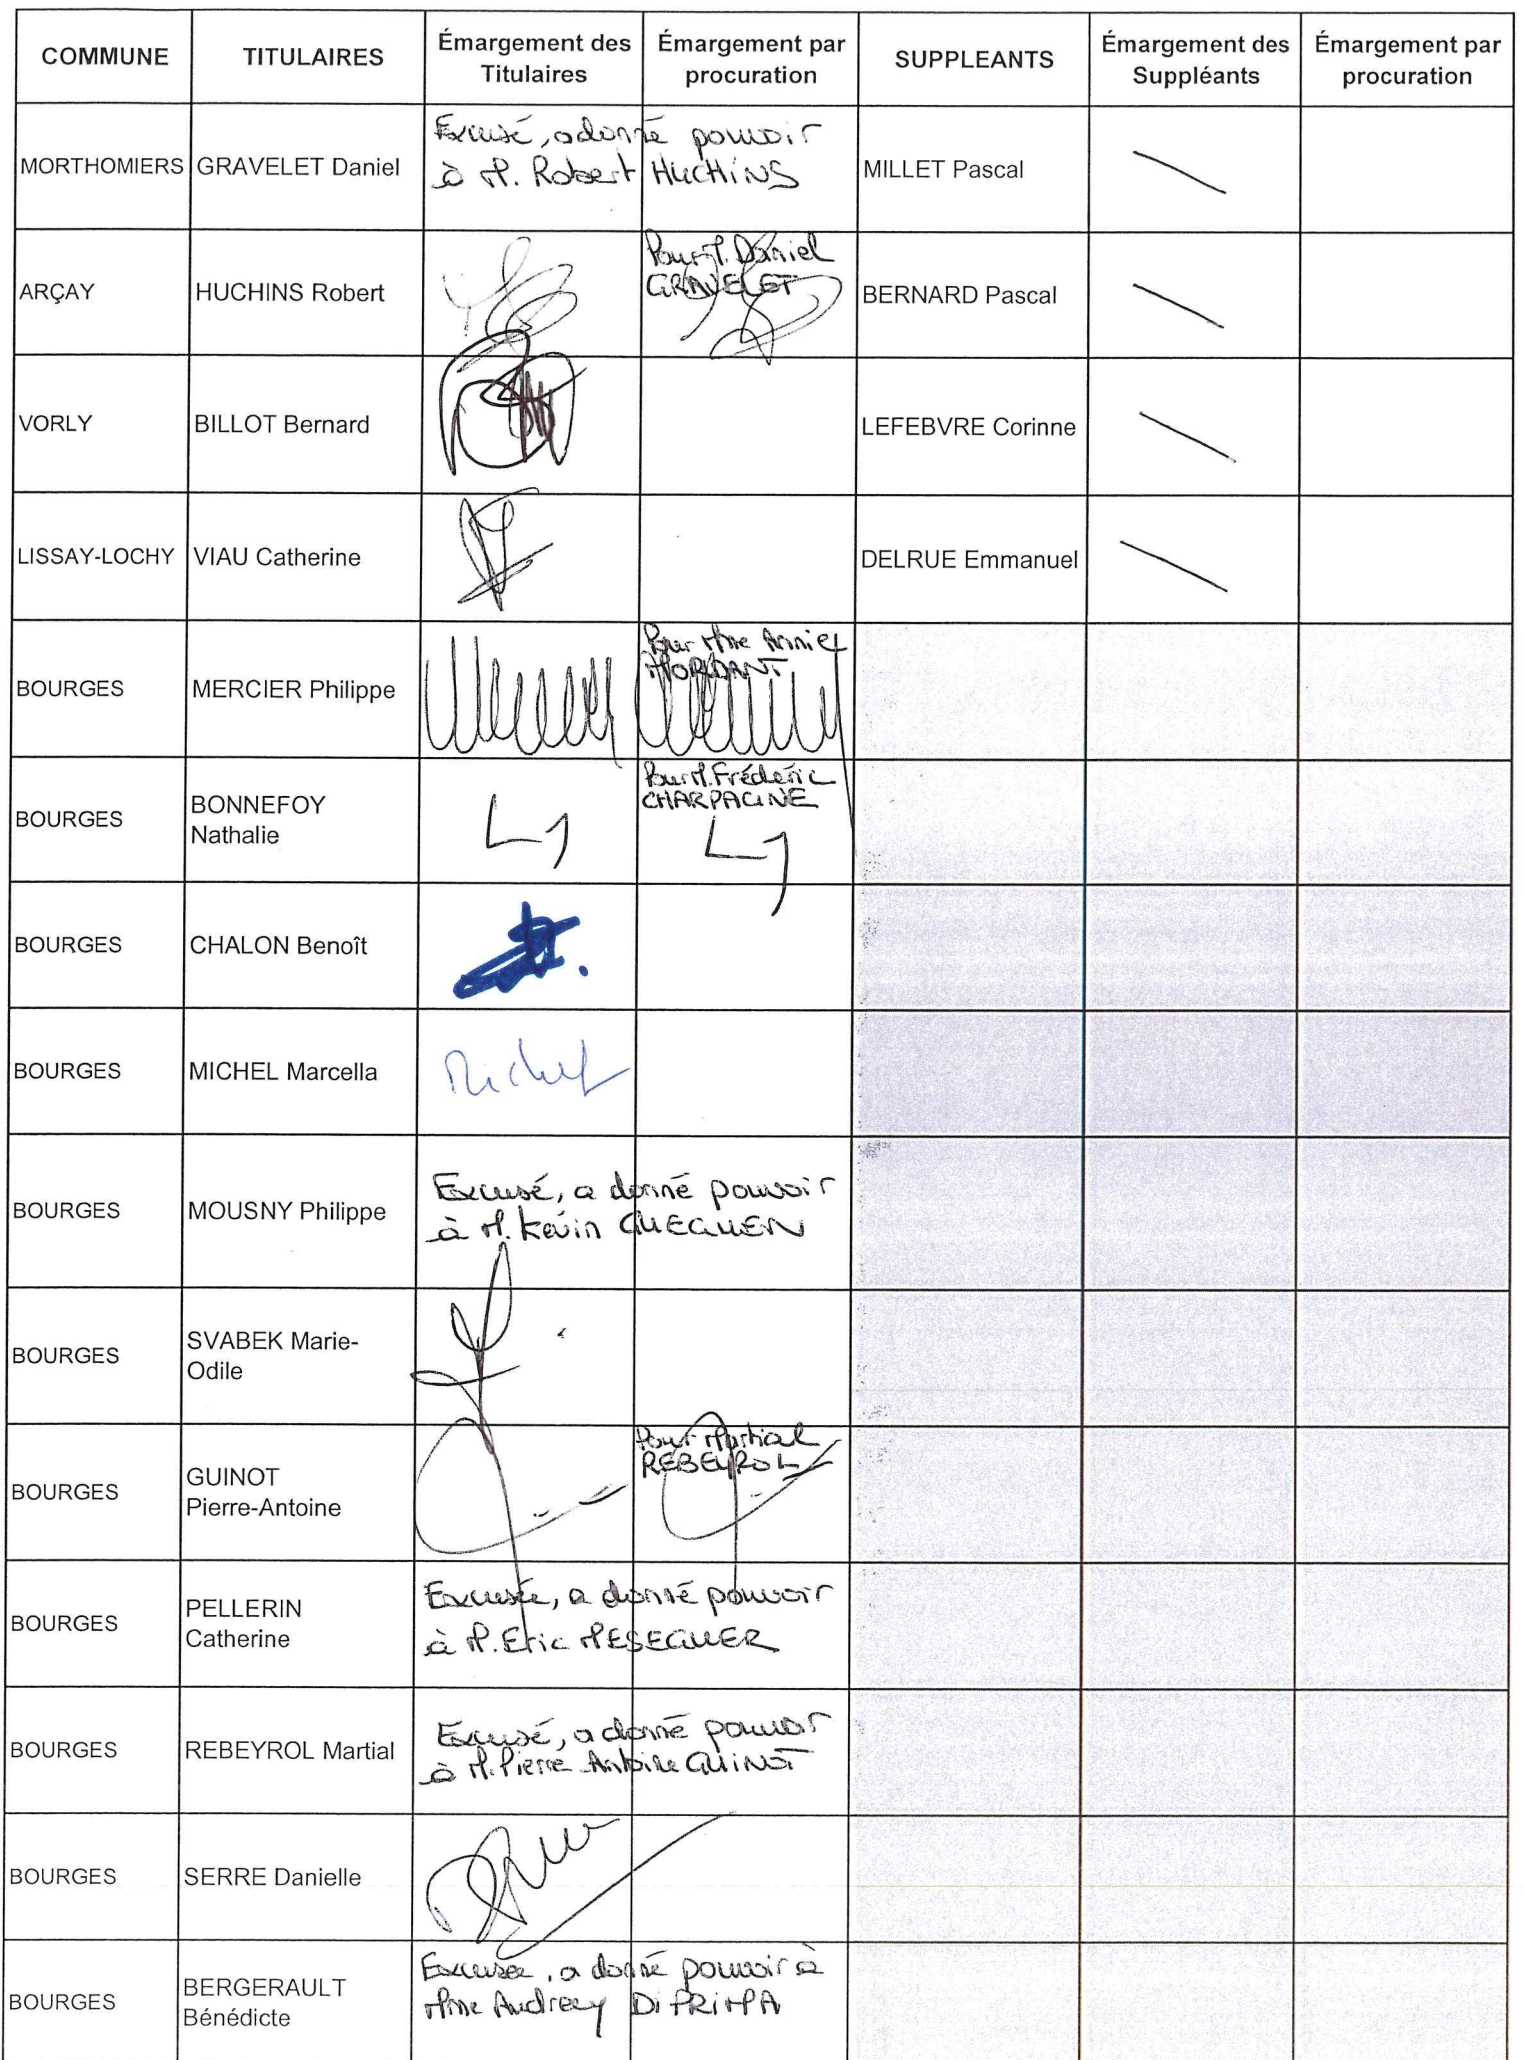 COMMUNE TITULAIRES Émargement des Titulaires Émargement par procuration SUPPLEANTS Émargement des Suppléants Émargement par procuration
MORTHOMIERS GRAVELET Daniel Excusé, a donné pouvoir MILLET Pascal
à M. Robert HUCHINS
ARÇAY HUCHINS Robert Pour M. Daniel BERNARD Pascal
GRAVELET
VORLY BILLOT Bernard LEFEBVRE Corinne
LISSAY-LOCHY VIAU Catherine DELRUE Emmanuel
BOURGES MERCIER Philippe Pour Mme Annie
MORDANT
BOURGES BONNEFOY Pour M. Frédéric
Nathalie CHARPAGNE
BOURGES CHALON Benoît
BOURGES MICHEL Marcella Michel
BOURGES MOUSNY Philippe Excusé, a donné pouvoir
à M. Kévin GUEGUEN
BOURGES SVABEK Marie-
Odile
BOURGES GUINOT Pour Martial
Pierre-Antoine REBEYROL
BOURGES PELLERIN Excusée, a donné pouvoir
Catherine à M. Eric MESEGUER
BOURGES REBEYROL Martial Excusé, a donné pouvoir
à M. Pierre-Antoine GUINOT
BOURGES SERRE Danielle
BOURGES BERGERAULT Excusée, a donné pouvoir à
Bénédicte Mme Audrey DI PRIMA